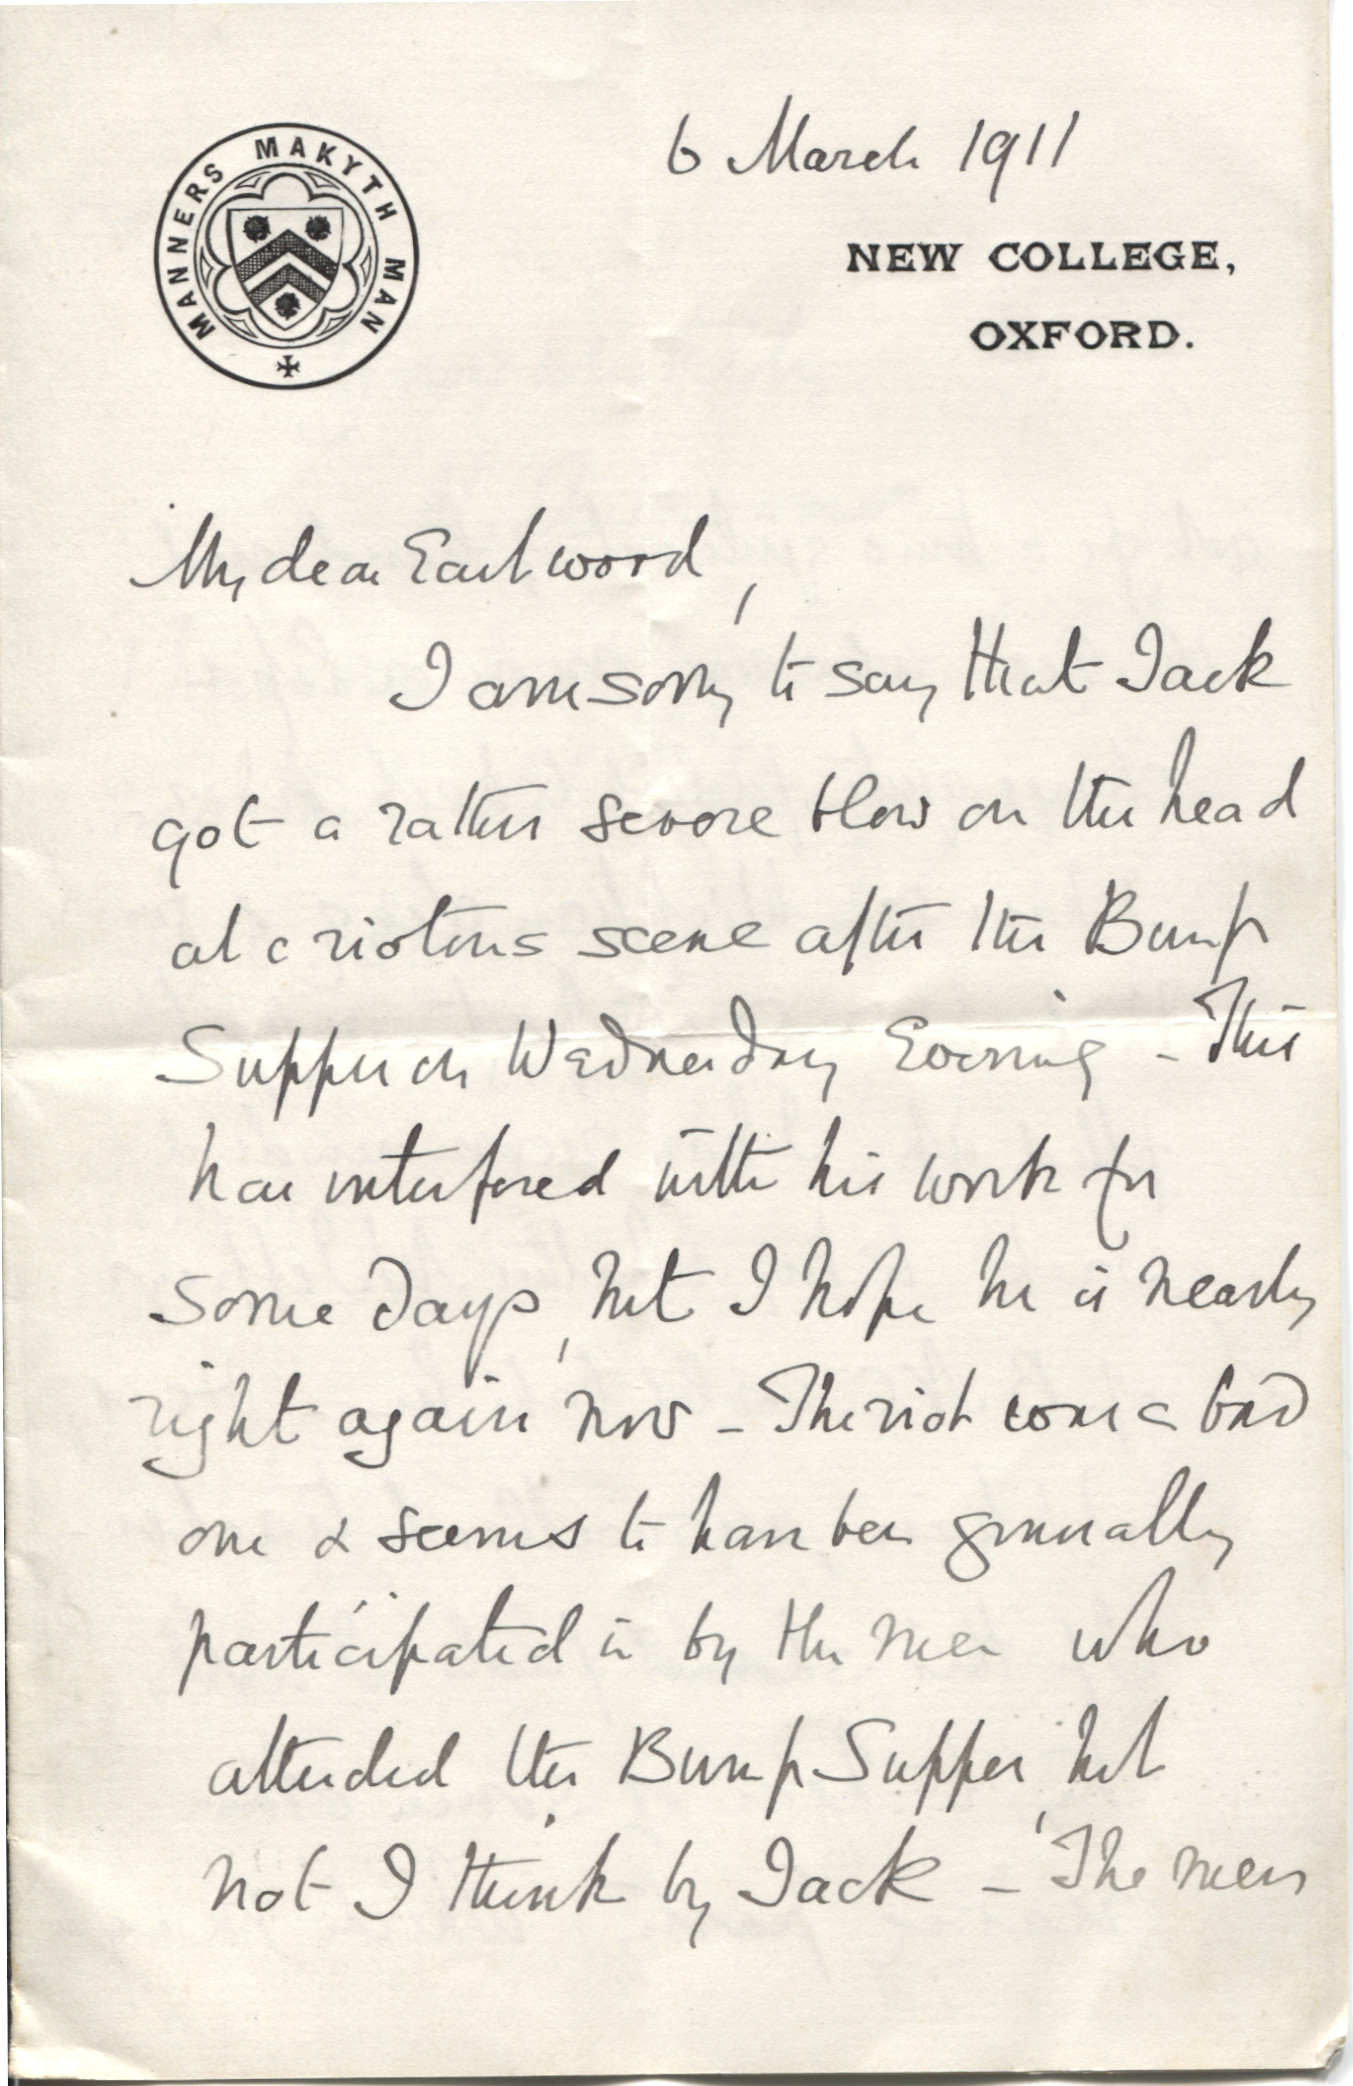 6 March 1911
MANNERS MAKYTH MAN
NEW COLLEGE,
OXFORD.
My dear Eastwood,
I am sorry to say that Jack
got a rather severe blow on the head
at a riotous scene after the Bump
Supper on Wednesday Evening - This
has interfered with his work for
some days, but I hope he is nearly
right again now - The riot was a bad
one & seems to have been generally
participated in by the men who
attended the Bump Supper, but
not I think by Jack - The men